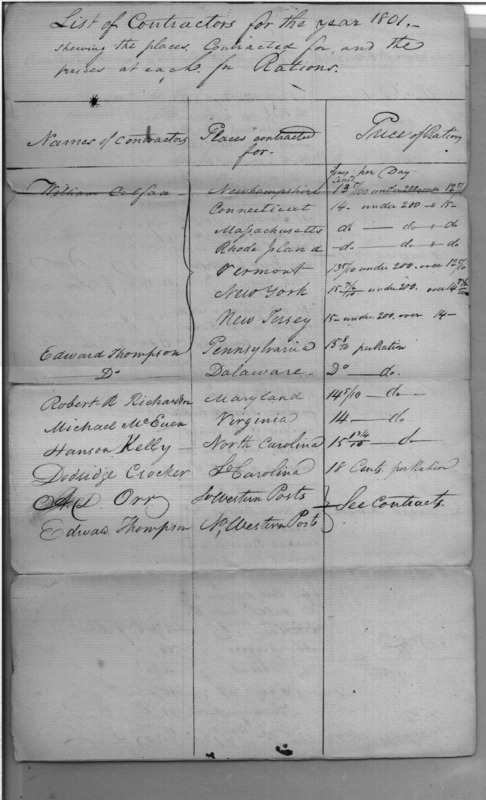 List of Contractors for the year 1801.
shewing the places Contracted for, and the
prices at each for Rations.
Names of Contractors Places contracted for. Price of Ration
per Day
William Colfax Newhampshire 13 5/10 under 200 over 12 5/
Connecticut 14 under 200 13
Massachusetts do do + do
Rhode Island do do + do
Vermont 13 5/10 under 200. over 12 5/10
New York 15 under 200. over 14
New Jersey 15 under 200. over 14
Edward Thompson Pennsylvania 15 per Ration
Do Dalaware Do do.
Robert R Richardson Maryland 14 5/10 do
Michael McEuen Virginia 14 do
Hanson Kelly North Carolina 15 do
Dodridge Crocker So Carolina 18 Cents per Ration
A. D. Orr So Western Posts See Contracts.
Edward Thompson No, Western Posts